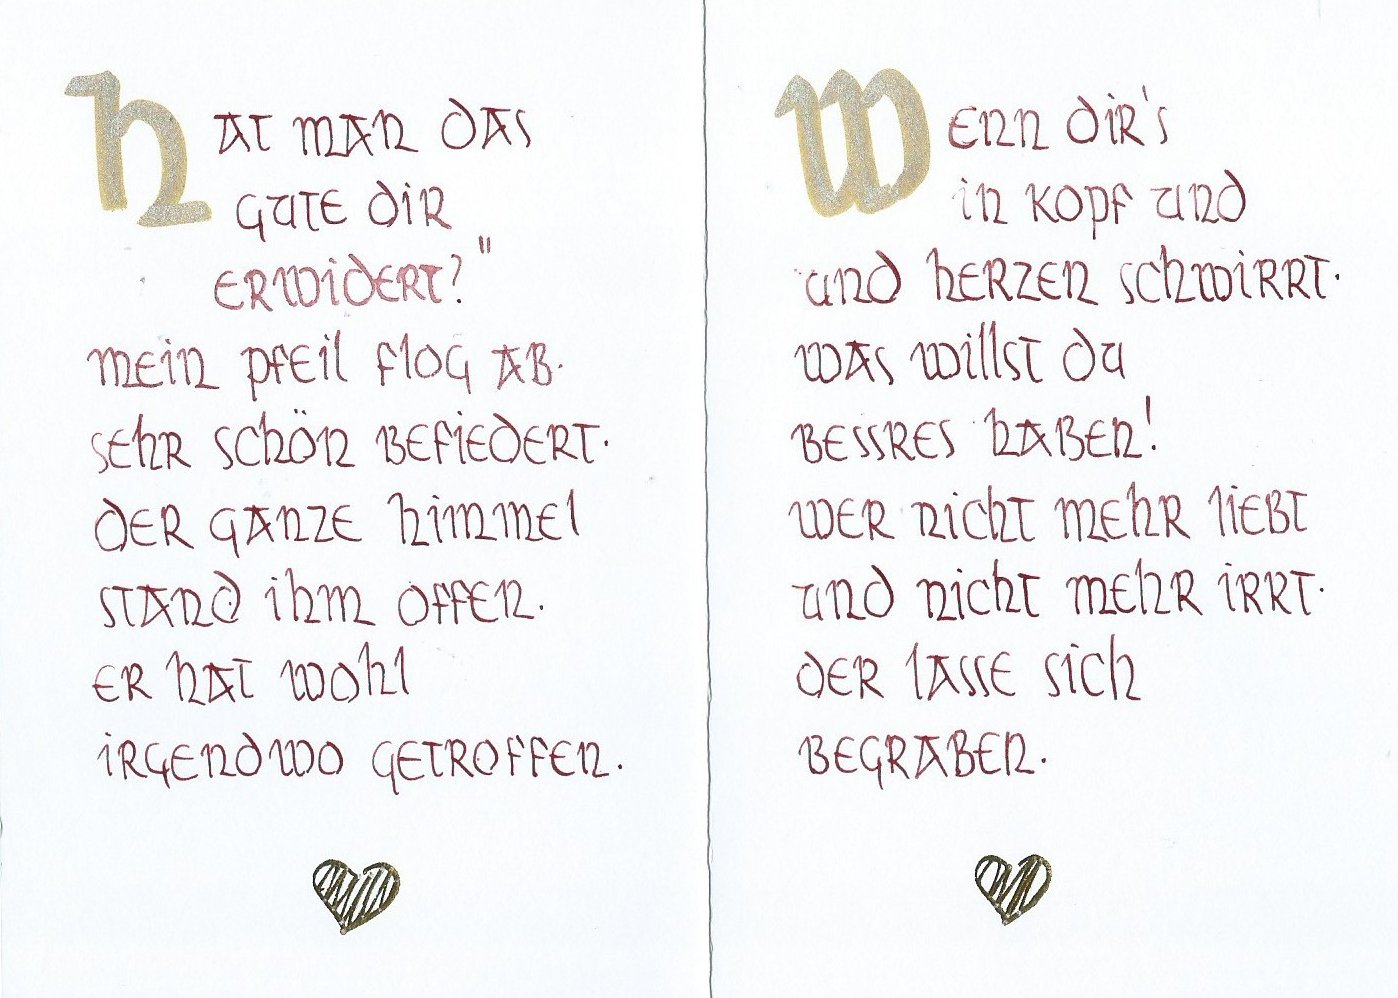 Hat man das
gute dir
erwidert?"
mein pfeil flog ab.
sehr schön befiedert.
der ganze himmel
stand ihm offen.
er hat wohl
irgendwo getroffen.
Wenn dir's
in kopf und
und herzen schwirrt.
was willst du
bessres haben!
wer nicht mehr liebt
und nicht mehr irrt.
der lasse sich
begraben.